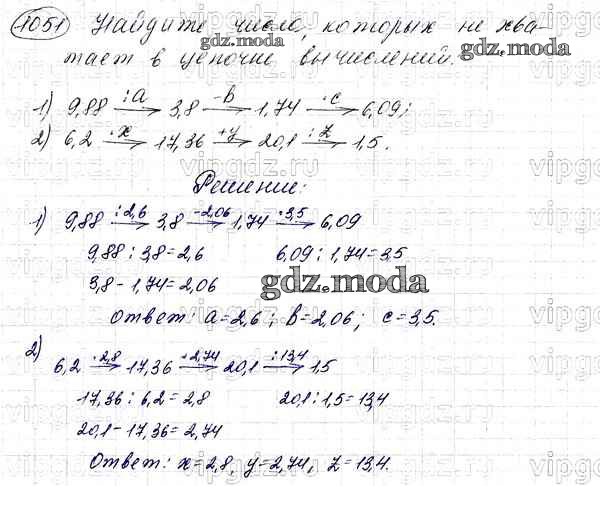 1051 Найдите числа, которых не хва-
тает в цепочки вычислений.
1) 9,88 :a → 3,8 -b → 1,74 ·c → 6,09;
2) 6,2 ·x → 17,36 +y → 20,1 :z → 1,5.
Решение:
1) 9,88 :2,6 → 3,8 -2,06 → 1,74 ·3,5 → 6,09
9,88 : 3,8 = 2,6 6,09 : 1,74 = 3,5
3,8 - 1,74 = 2,06
gdz.moda
Ответ: a = 2,6; b = 2,06; c = 3,5.
2) 6,2 ·2,8 → 17,36 +2,74 → 20,1 :13,4 → 1,5
17,36 : 6,2 = 2,8 20,1 : 1,5 = 13,4
20,1 - 17,36 = 2,74
Ответ: x = 2,8, y = 2,74, z = 13,4.